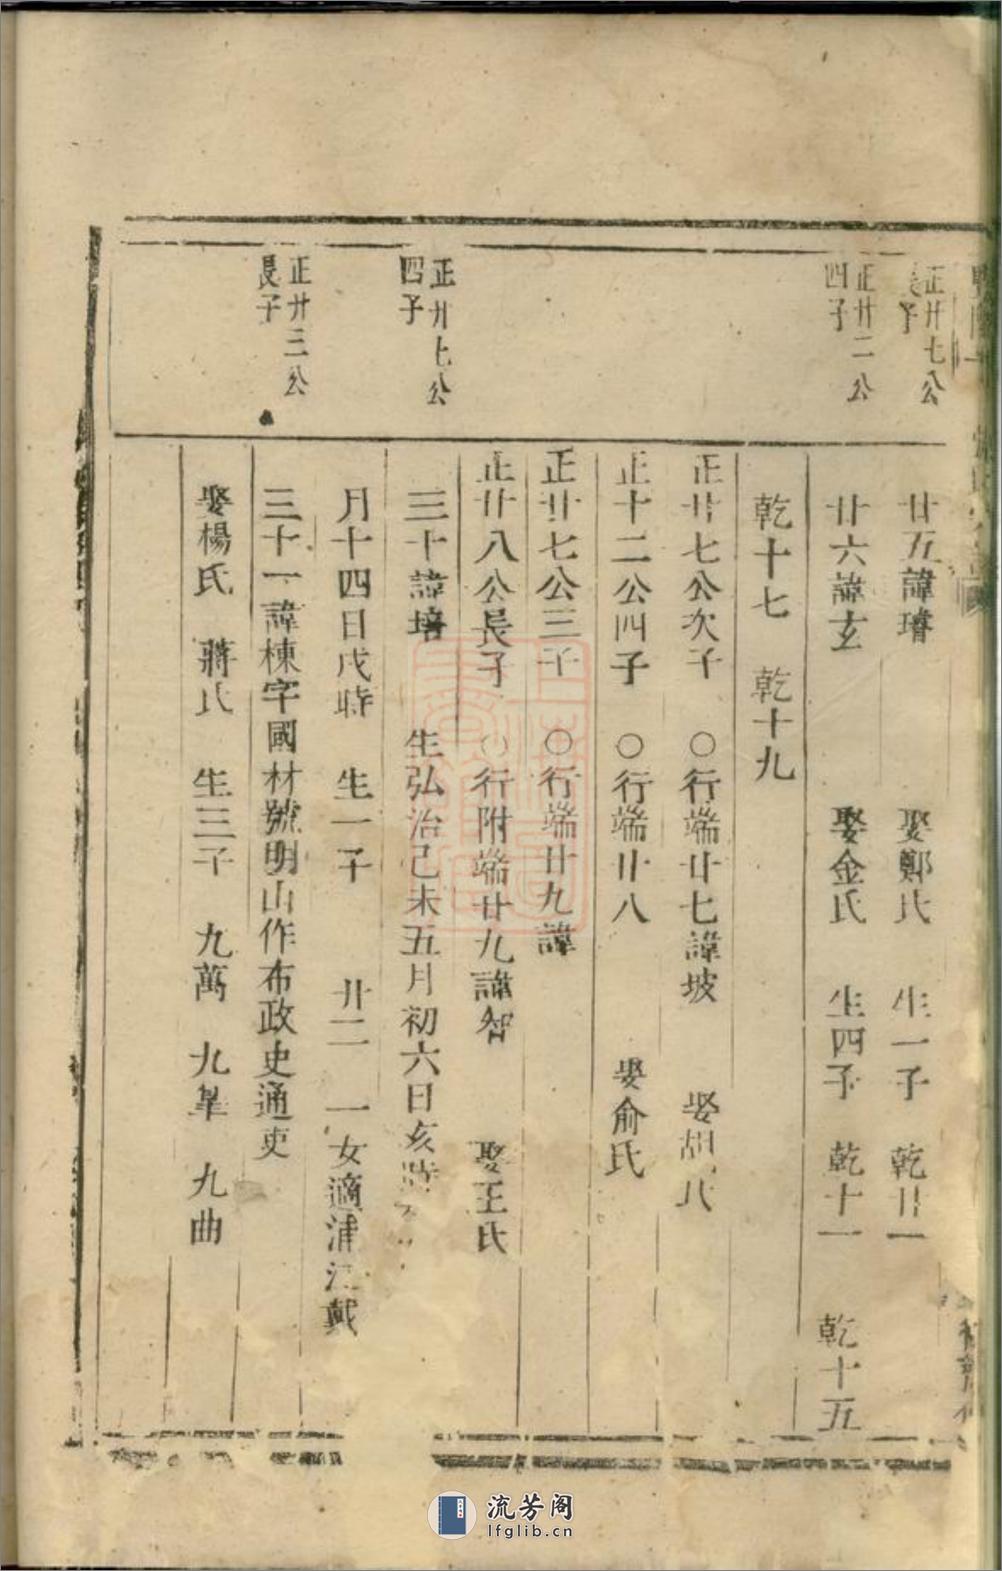 正廿七公
廿五諱璿 娶鄭氏 生一子 乾廿一
正廿二公
四子
廿六諱玄 娶金氏 生四子 乾十一 乾十五
乾十七 乾十九
正廿七公次子 ○行端廿七諱坡 娶胡氏
正十二公四子 ○行端廿八 娶俞氏
正廿七公三子 ○行端廿九諱
正廿八公長子 ○行附端廿九諱智 娶王氏
正廿七公
四子
三十諱培 生弘治己未五月初六日亥時
月十四日戌時 生一子 廿二 一女適浦江戴
正廿三公
長子
三十一諱棟字國材號明山作布政史通吏
娶楊氏 蔣氏 生三子 九萬 九皐 九曲
流芳阁
lfglib.cn